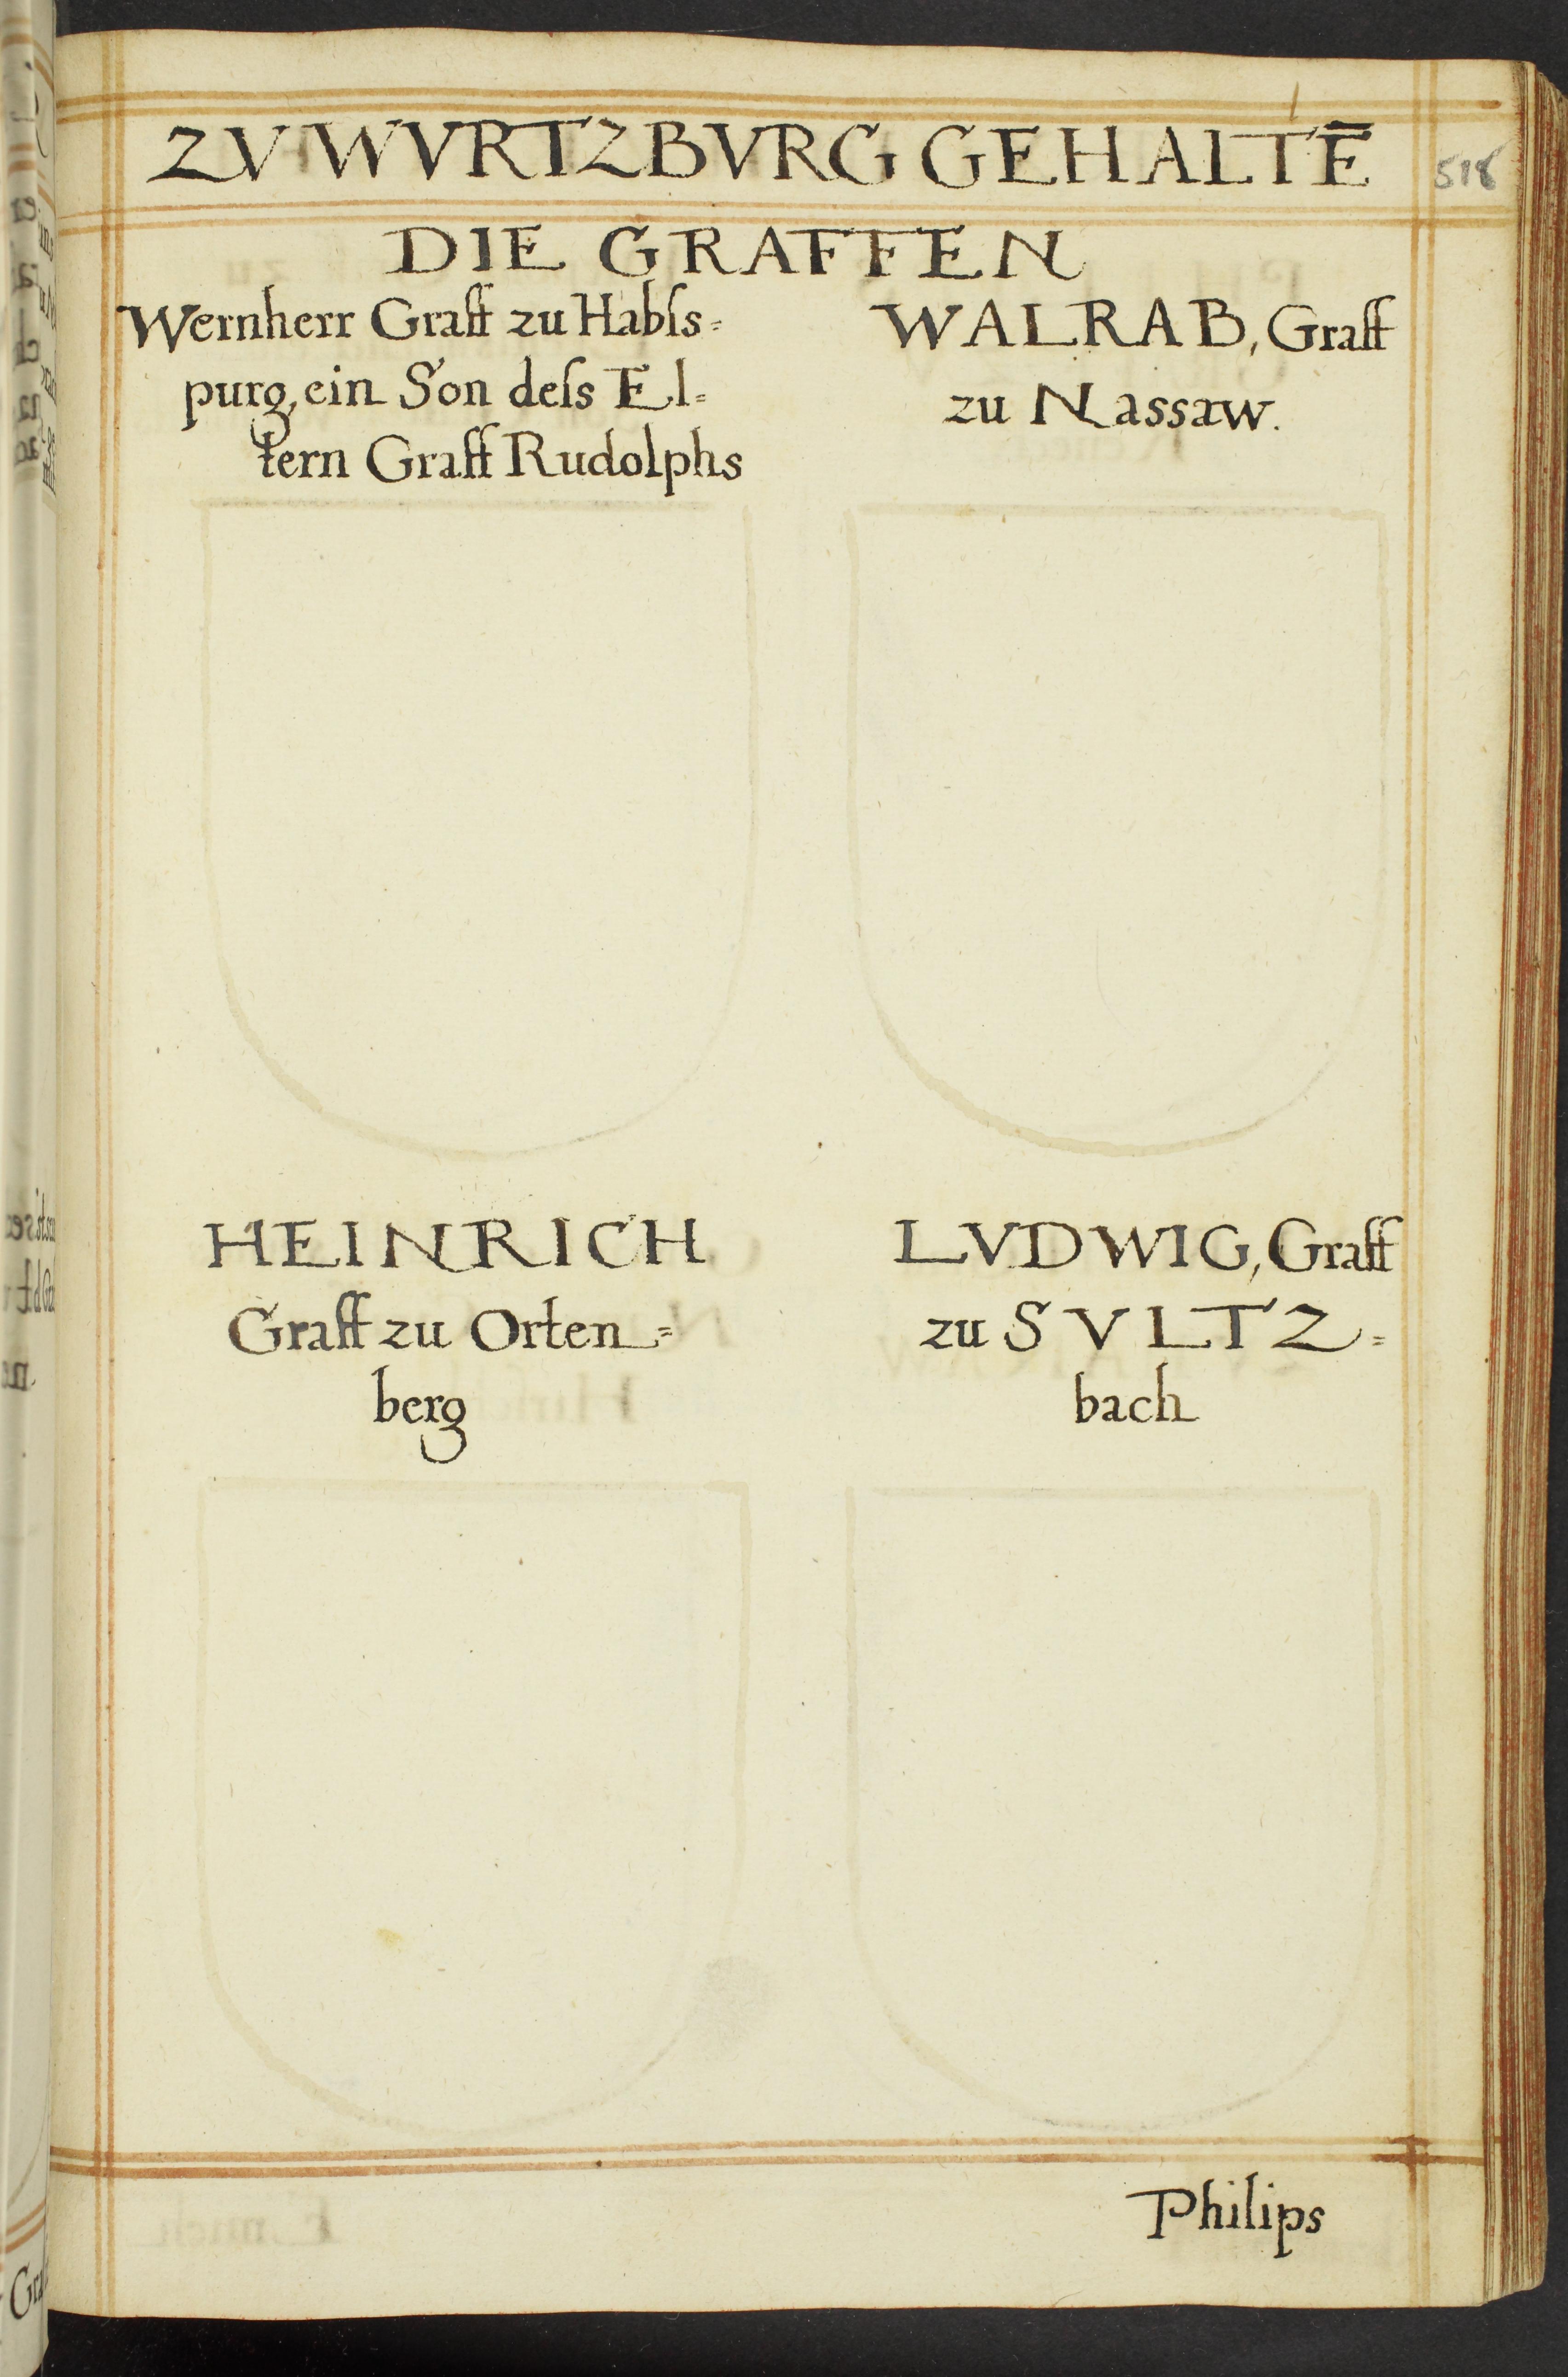 ZV WVRTZBVRG GEHALTĒ
518
DIE GRAFFEN
Wernherr Graff zu Habſs=
purg, ein Son deſs El=
tern Graff Rudolphs
WALRAB, Graff
zu Nassaw.
HEINRICH
Graff zu Orten=
berg
LVDWIG, Graff
zu SVLTZ=
bach
Philips